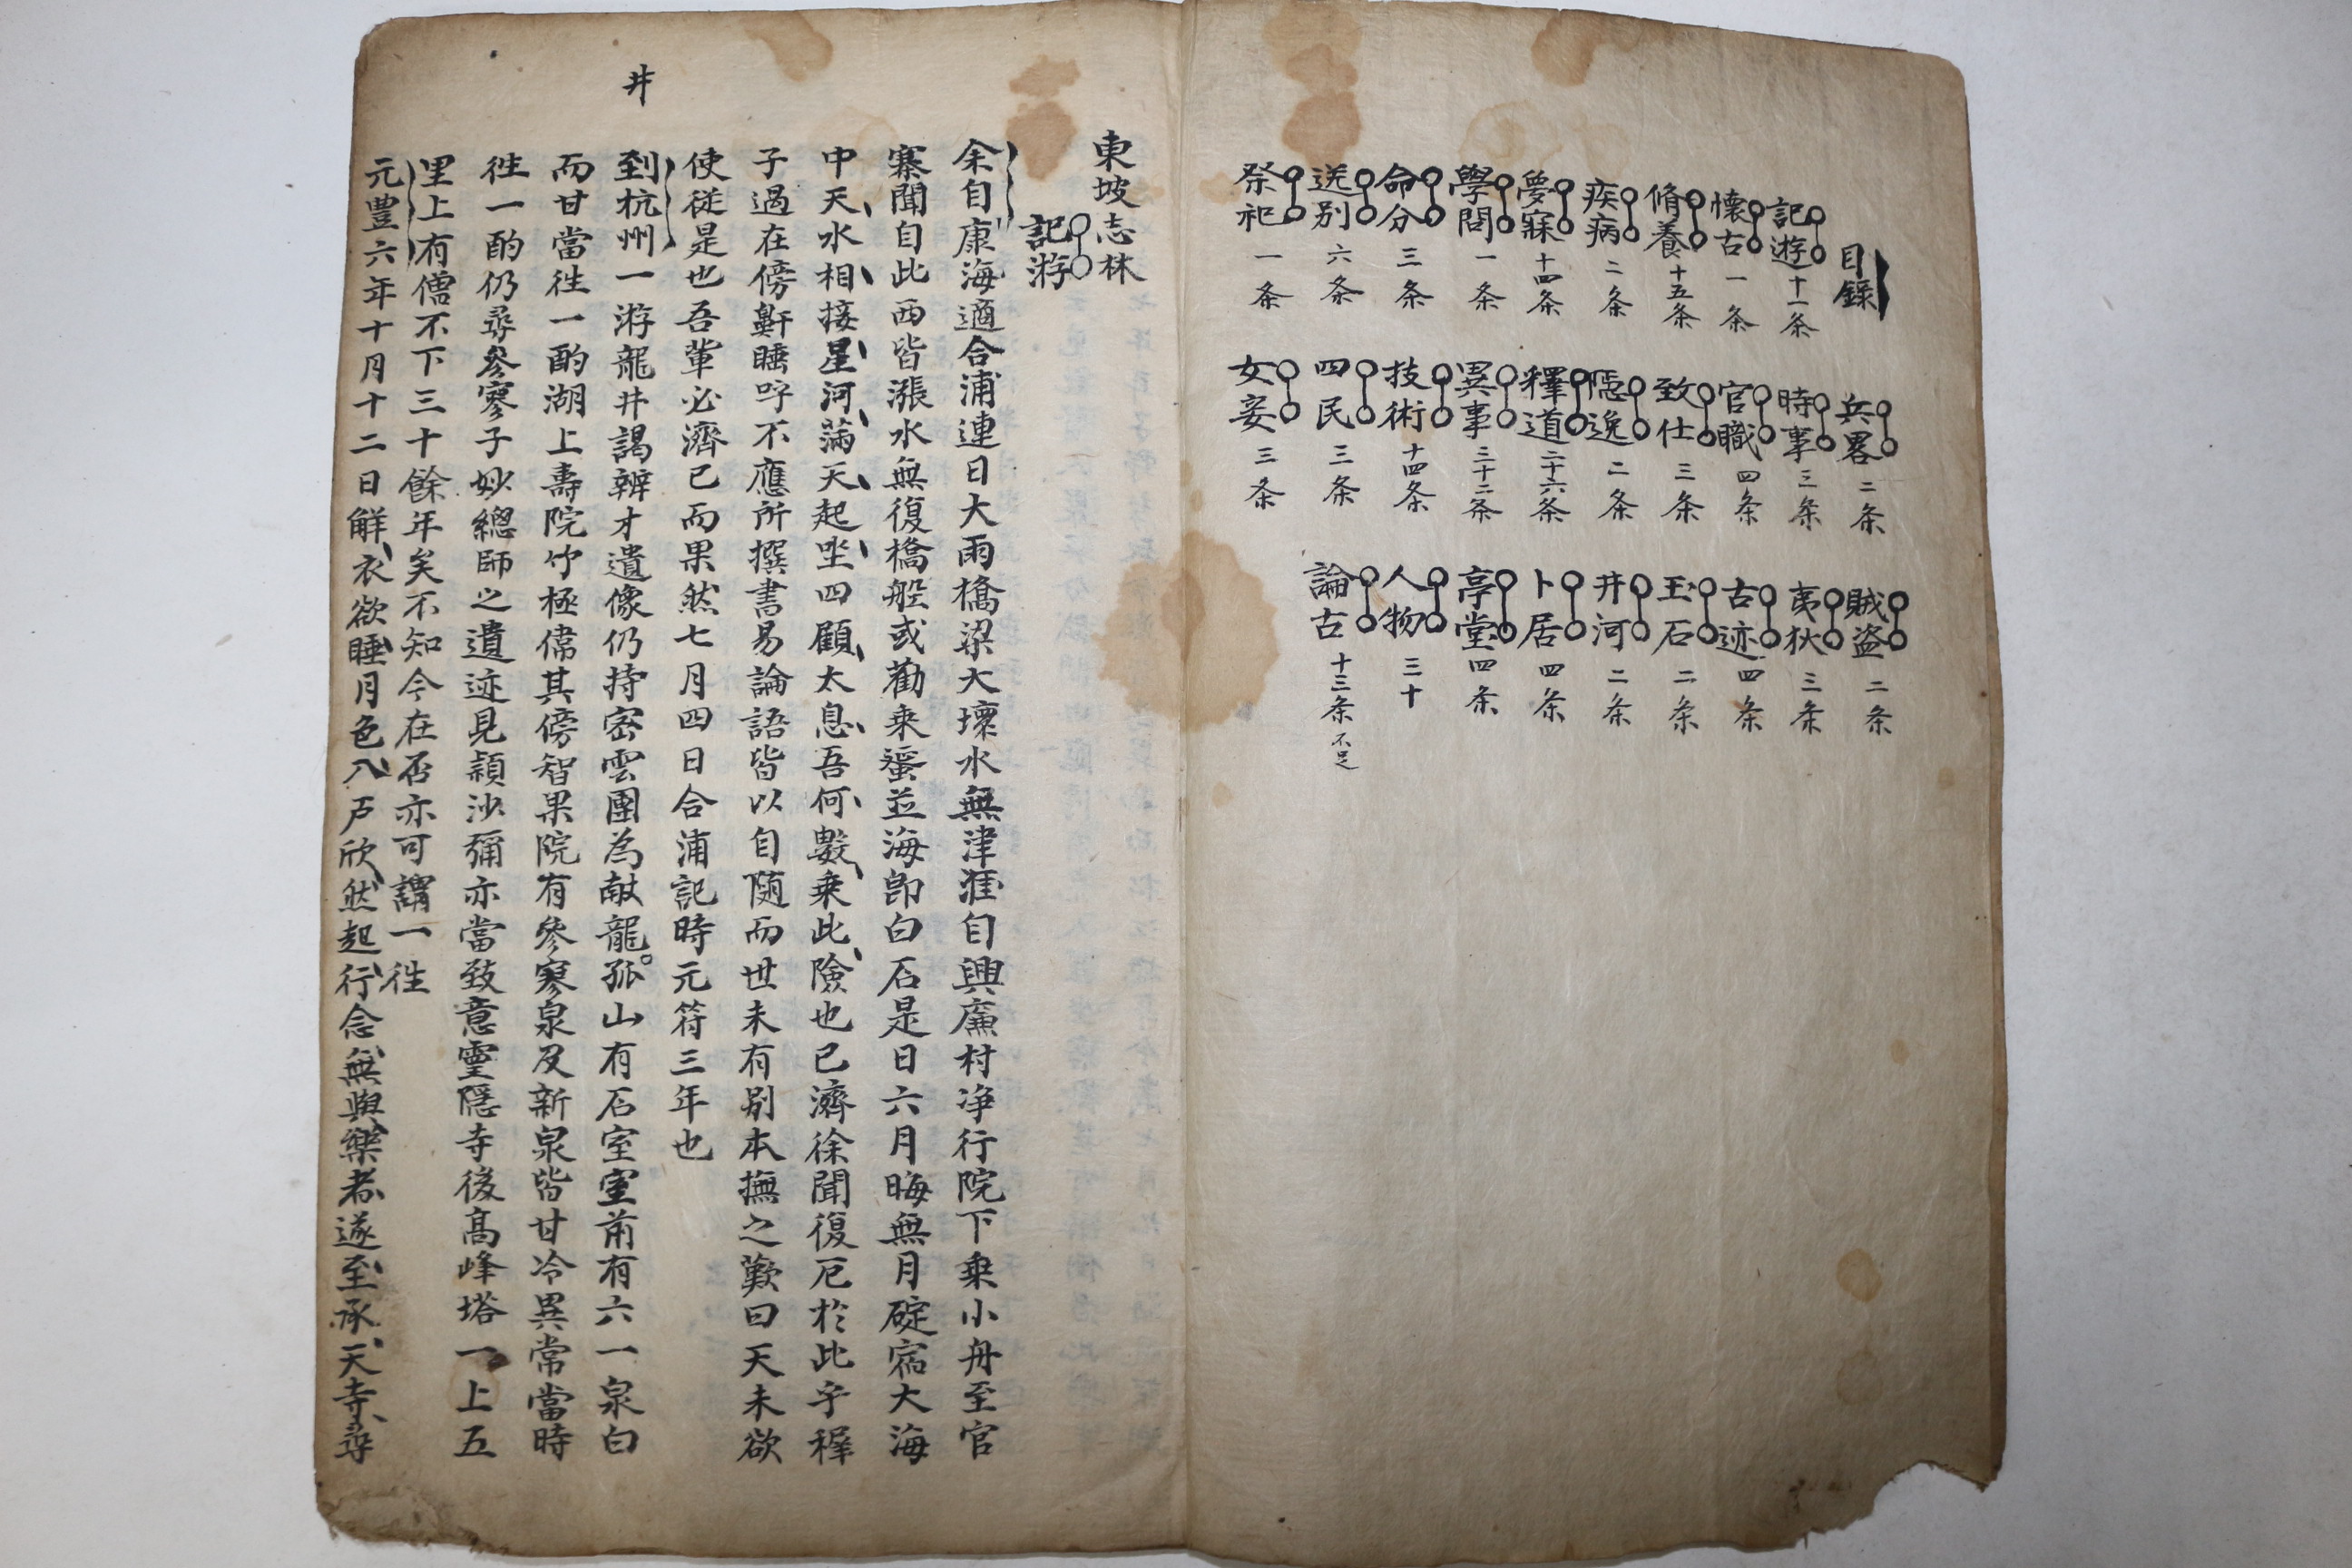 目錄
記游十一条
懷古一条
脩養十五条
疾病二条
夢寐十四条
學問一条
命分三条
送別六条
祭祀一条
兵畧二条
時事三条
官職四条
致仕三条
隱逸二条
釋道二十六条
異事三十二条
技術十四条
四民三条
女妾三条
賊盗二条
夷狄三条
古迹四条
玉石二条
井河二条
卜居四条
亭堂四条
人物三十
論古十三条不足
東坡志林
記游
余自康海適合浦連日大雨橋梁大壞水無津涯自興廉村净行院下乗小舟至官
寨聞自此西皆漲水無復橋舩或勸乗蜑並海即白石是日六月晦無月碇宿大海
中天水相接星河滿天起坐四顧太息吾何數乗此險也已濟徐聞復厄於此乎稚
子過在傍鼾睡呼不應所撰書易論語皆以自隨而世未有別本撫之歎曰天未欲
使從是也吾輩必濟已而果然七月四日合浦記時元符三年也
井
到杭州一游龍井謁辨才遺像仍持密雲團為献龍孤山有石室室前有六一泉白
而甘當徃一酌湖上壽院竹極偉其傍智果院有參寥泉及新泉皆甘冷異常當時
徃一酌仍尋參寥子妙總師之遺迹見頴沙彌亦當致意靈隱寺後高峰塔一上五
里上有僧不下三十餘年矣不知今在否亦可謂一徃
元豊六年十月十二日解衣欲睡月色入戶欣然起行念無與樂者遂至承天寺尋